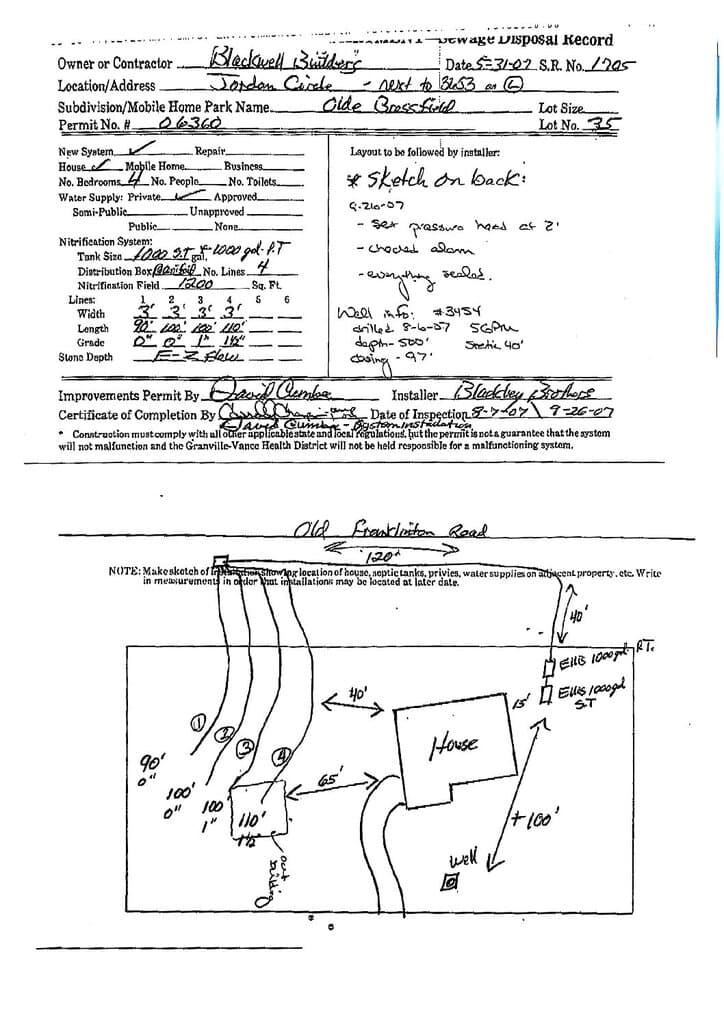 Sewage Disposal Record
Owner or Contractor Blackwell Builders Date 5-31-07 S.R. No. 1705
Location/Address Jordan Circle - next to 3653 on L
Subdivision/Mobile Home Park Name Olde Brassfield Lot Size
Permit No. # 06360 Lot No. 35
New System ✓ Repair
House ✓ Mobile Home Business
No. Bedrooms 4 No. People No. Toilets
Water Supply: Private ✓ Approved
Semi-Public Unapproved
Public None
Nitrification System:
Tank Size 1000 S.T gal. 1000 gal. P.T
Distribution Box No. Lines 4
Nitrification Field 1200 Sq. Ft.
Lines: 1 2 3 4 5 6
Width 3' 3' 3' 3'
Length 90' 100' 100' 110'
Grade 0" 0" 1" 1½"
Stone Depth E-Z Flow
Layout to be followed by installer:
* Sketch on back:
9-26-07
- set pressure head at 2'
- checked alarm
- everything sealed.
Well info: #3454
drilled 8-6-07 5GPM
depth - 500' Static 40'
casing - 97'
Improvements Permit By David Installer Blackley Brothers
Certificate of Completion By Date of Inspection 8-7-07 \ 9-26-07
David - System Installation
* Construction must comply with all other applicable state and local regulations, but the permit is not a guarantee that the system
will not malfunction and the Granville-Vance Health District will not be held responsible for a malfunctioning system.
Old Franklinton Road
120'
NOTE: Make sketch of installation showing location of house, septic tanks, privies, water supplies on adjacent property, etc. Write
in measurements in order that installations may be located at later date.
40'
Ellis 1000 gal. P.T.
Ellis 1000 gal
S.T
15'
40'
House
1
2
3
4
65'
90'
0"
100'
0"
100
1"
110'
1½"
out
bilding
+100'
Well